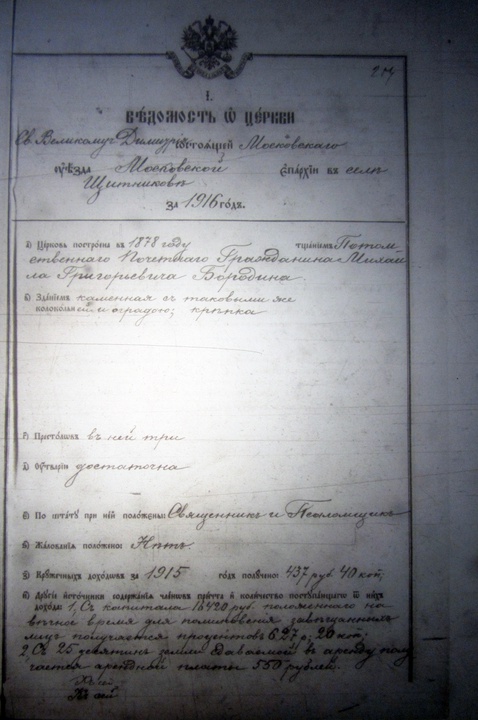 I.
ВѢДОМОСТЬ Ѡ ЦЕРКВИ
Св. Великомуч. Димитрія состоящей Московскаго
уѣзда Московской епархіи въ селѣ
Щитниковѣ
за 1916 годъ.
а) Церковь построена въ 1878 году тщаніемъ Потом
ственнаго Почетнаго Гражданина Михаи
ла Григорьевича Бородина.
б) Зданіемъ каменная съ таковыми же
колокольней и оградою; крѣпка
г) Престоловъ въ ней три
д) Утварію достаточна
е) По штату при ней положены: Священникъ и Псаломщикъ
Жалованія положено: Нѣтъ.
Кружечныхъ доходовъ за 1915 годъ получено: 437 руб 40 коп;
Другіе источники содержанія членовъ причта и количество поступающаго ѿ нихъ
дохода: 1, Съ капитала 16420 руб. положеннаго на
вѣчное время для поминовенія завѣщанныхъ
лицъ получается процентовъ 627 р; 20 коп;
2, Съ 25 десятинъ земли даваемой въ аренду полу
чается арендной платы 550 рублей.